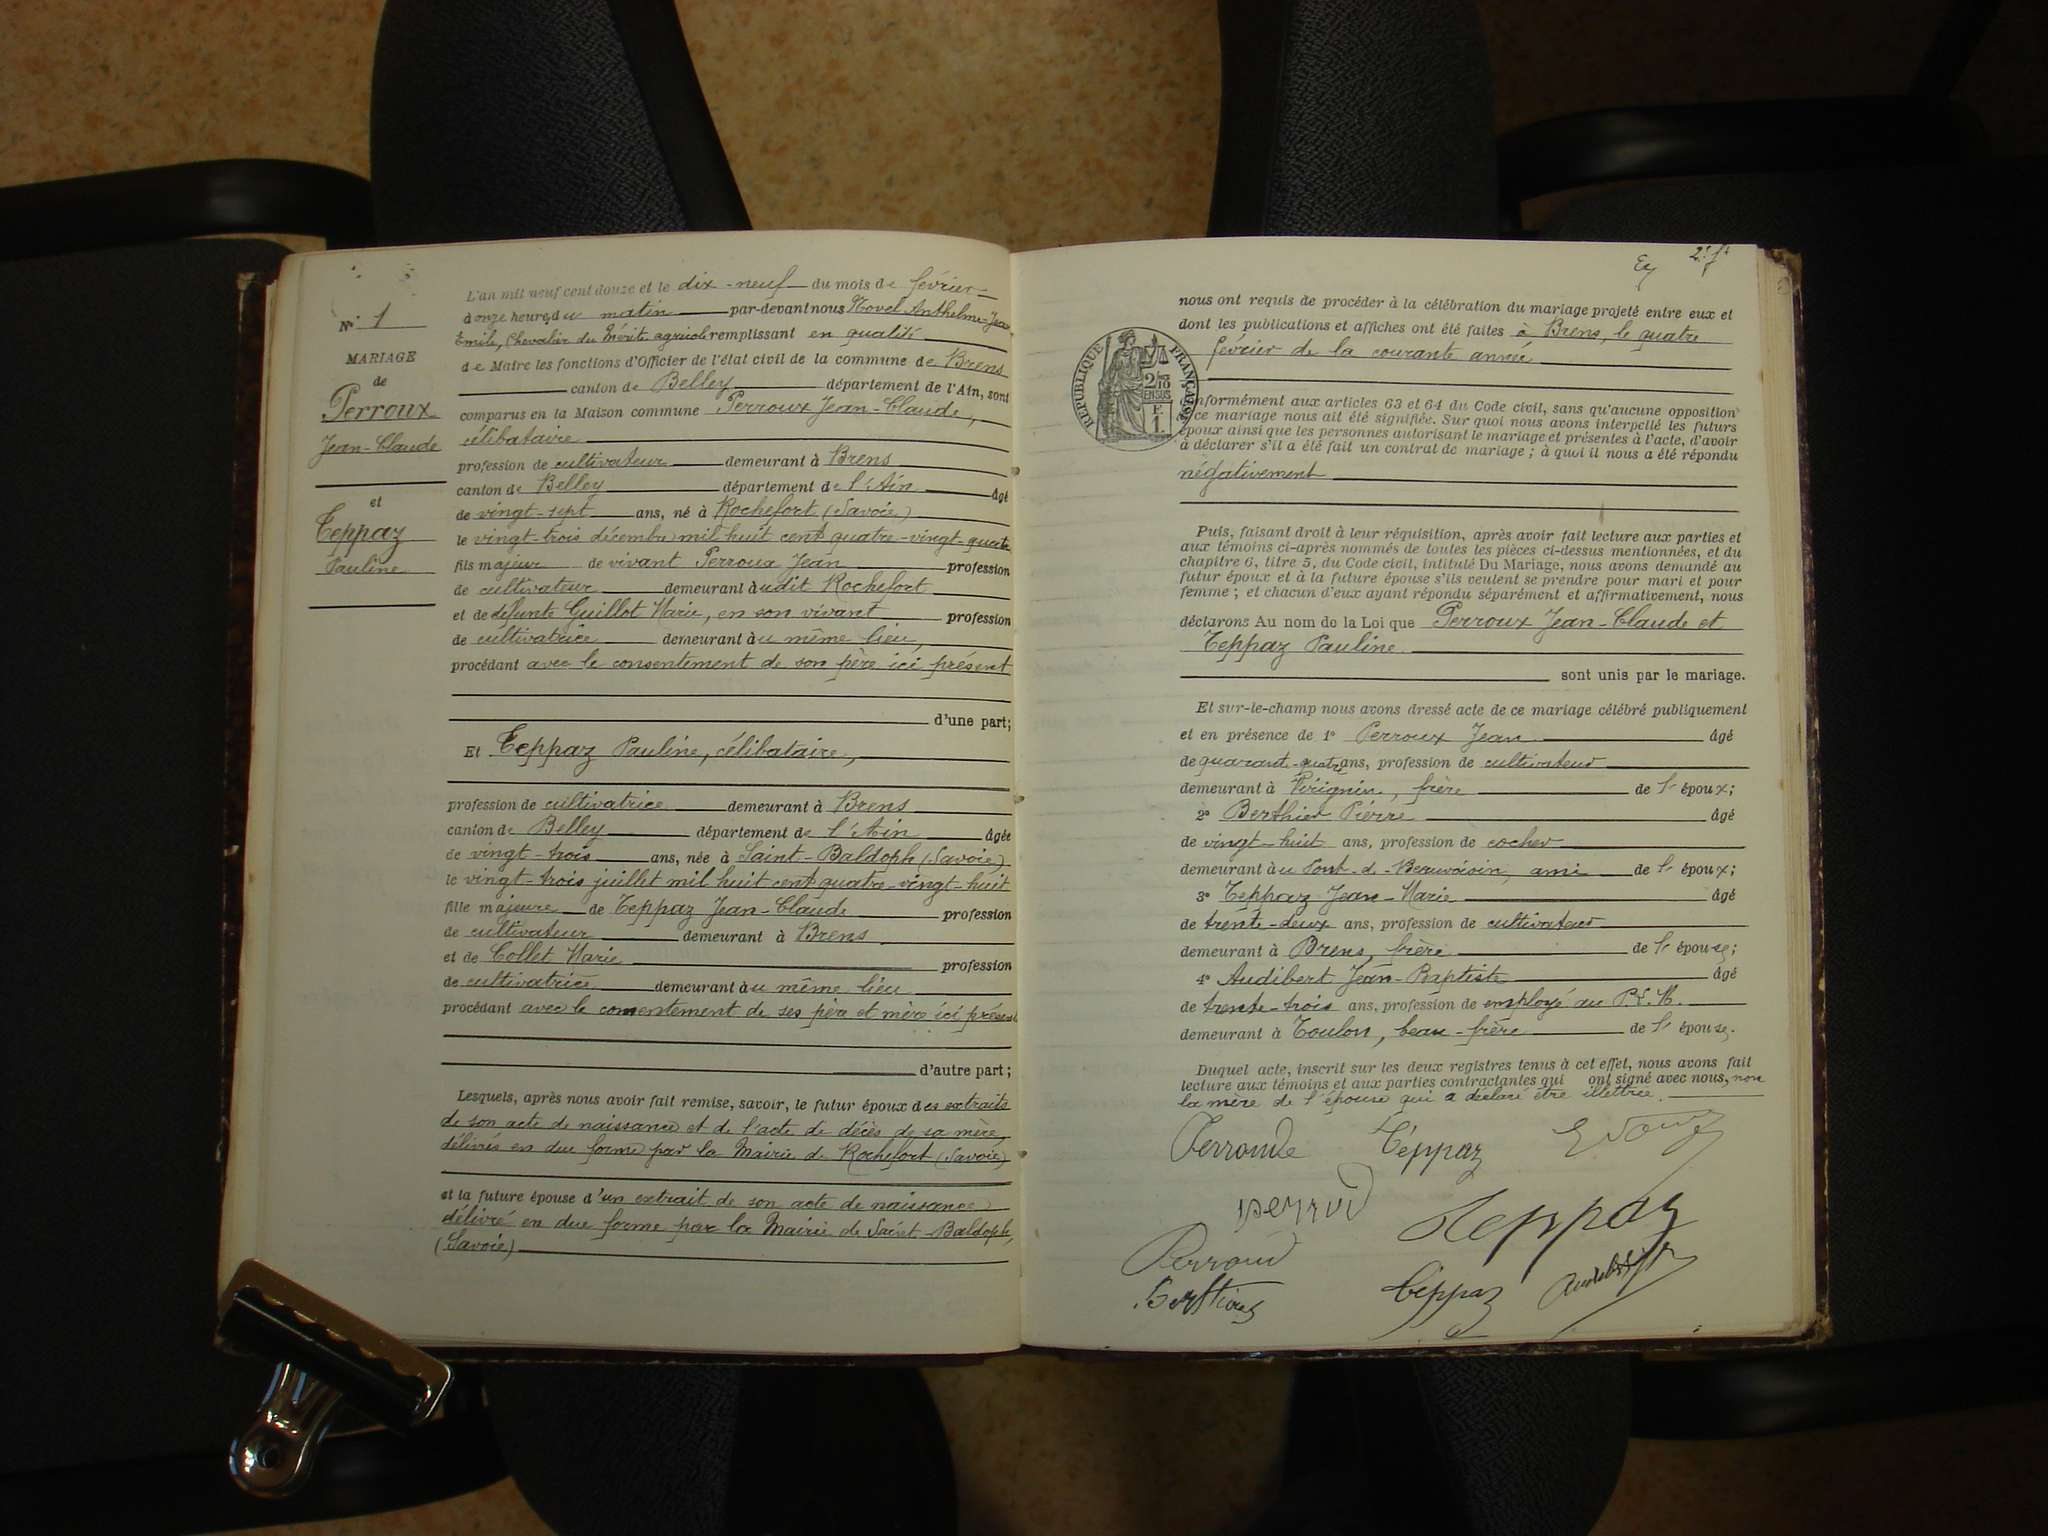 N° 1
MARIAGE
de
Perroux
Jean-Claude
et
Teppaz
Pauline
L'an mil neuf cent douze et le dix-neuf du mois de février
à onze heures du matin par-devant nous Novel Anthelme-Jean
Emile, Chevalier du Mérite agricole remplissant en qualité
de Maire les fonctions d'Officier de l'état civil de la commune de Brens
canton de Belley département de l'Ain, sont
comparus en la Maison commune Perroux Jean-Claude,
célibataire
profession de cultivateur demeurant à Brens
canton de Belley département de l'Ain âgé
de vingt-sept ans, né à Rochefort (Savoie)
le vingt-trois décembre mil huit cent quatre-vingt-quatre
fils majeur de vivant Perroux Jean profession
de cultivateur demeurant audit Rochefort
et de défunte Guillot Marie, en son vivant profession
de cultivatrice demeurant au même lieu,
procédant avec le consentement de son père ici présent
d'une part;
Et Teppaz Pauline, célibataire,
profession de cultivatrice demeurant à Brens
canton de Belley département de l'Ain âgée
de vingt-trois ans, née à Saint-Baldoph (Savoie)
le vingt-trois juillet mil huit cent quatre-vingt-huit
fille majeure de Teppaz Jean-Claude profession
de cultivateur demeurant à Brens
et de Collet Marie profession
de cultivatrice demeurant au même lieu
procédant avec le consentement de ses père et mère ici présents
d'autre part;
Lesquels, après nous avoir fait remise, savoir, le futur époux des extraits
de son acte de naissance et de l'acte de décès de sa mère,
délivrés en due forme par la Mairie de Rochefort (Savoie)
et la future épouse d'un extrait de son acte de naissance
délivré en due forme par la Mairie de Saint-Baldoph,
(Savoie)
nous ont requis de procéder à la célébration du mariage projeté entre eux et
dont les publications et affiches ont été faites à Brens, le quatre
février de la courante année
RÉPUBLIQUE FRANÇAISE
conformément aux articles 63 et 64 du Code civil, sans qu'aucune opposition
à ce mariage nous ait été signifiée. Sur quoi nous avons interpellé les futurs
époux ainsi que les personnes autorisant le mariage et présentes à l'acte, d'avoir
à déclarer s'il a été fait un contrat de mariage; à quoi il nous a été répondu
négativement
Puis, faisant droit à leur réquisition, après avoir fait lecture aux parties et
aux témoins ci-après nommés de toutes les pièces ci-dessus mentionnées, et du
chapitre 6, titre 5, du Code civil, intitulé Du Mariage, nous avons demandé au
futur époux et à la future épouse s'ils veulent se prendre pour mari et pour
femme; et chacun d'eux ayant répondu séparément et affirmativement, nous
déclarons Au nom de la Loi que Perroux Jean-Claude et
Teppaz Pauline
sont unis par le mariage.
Et sur-le-champ nous avons dressé acte de ce mariage célébré publiquement
et en présence de 1° Perroux Jean âgé
de quarant-quatre ans, profession de cultivateur
demeurant à Virignin, frère de l' époux;
2° Berthier Pierre âgé
de vingt-huit ans, profession de cocher
demeurant au Pont-de-Beauvoisin, ami de l' époux;
3° Teppaz Jean-Marie âgé
de trente-deux ans, profession de cultivateur
demeurant à Brens, frère de l' épouse;
4° Audibert Jean-Baptiste âgé
de trente-trois ans, profession de employé au P.L.M.
demeurant à Toulon, beau-frère de l' épouse.
Duquel acte, inscrit sur les deux registres tenus à cet effet, nous avons fait
lecture aux témoins et aux parties contractantes qui ont signé avec nous, non
la mère de l'épouse qui a déclaré être illettrée.
Teppaz
Teppaz
Teppaz